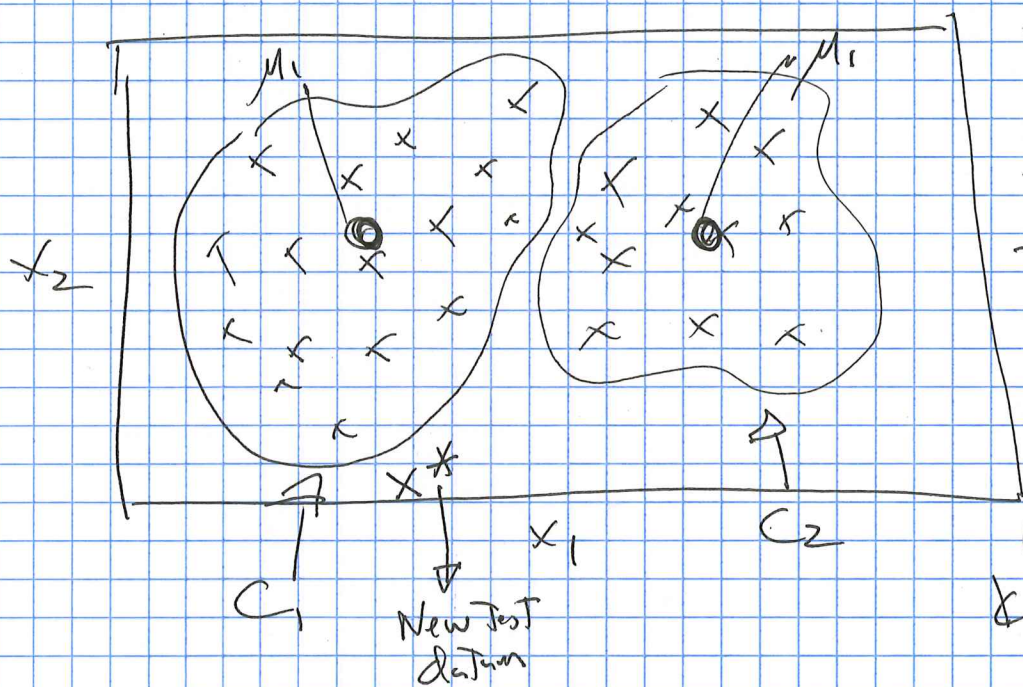 μ₁
μ₁
x₂
x*
x₁
C₂
C₁
New Test
datum